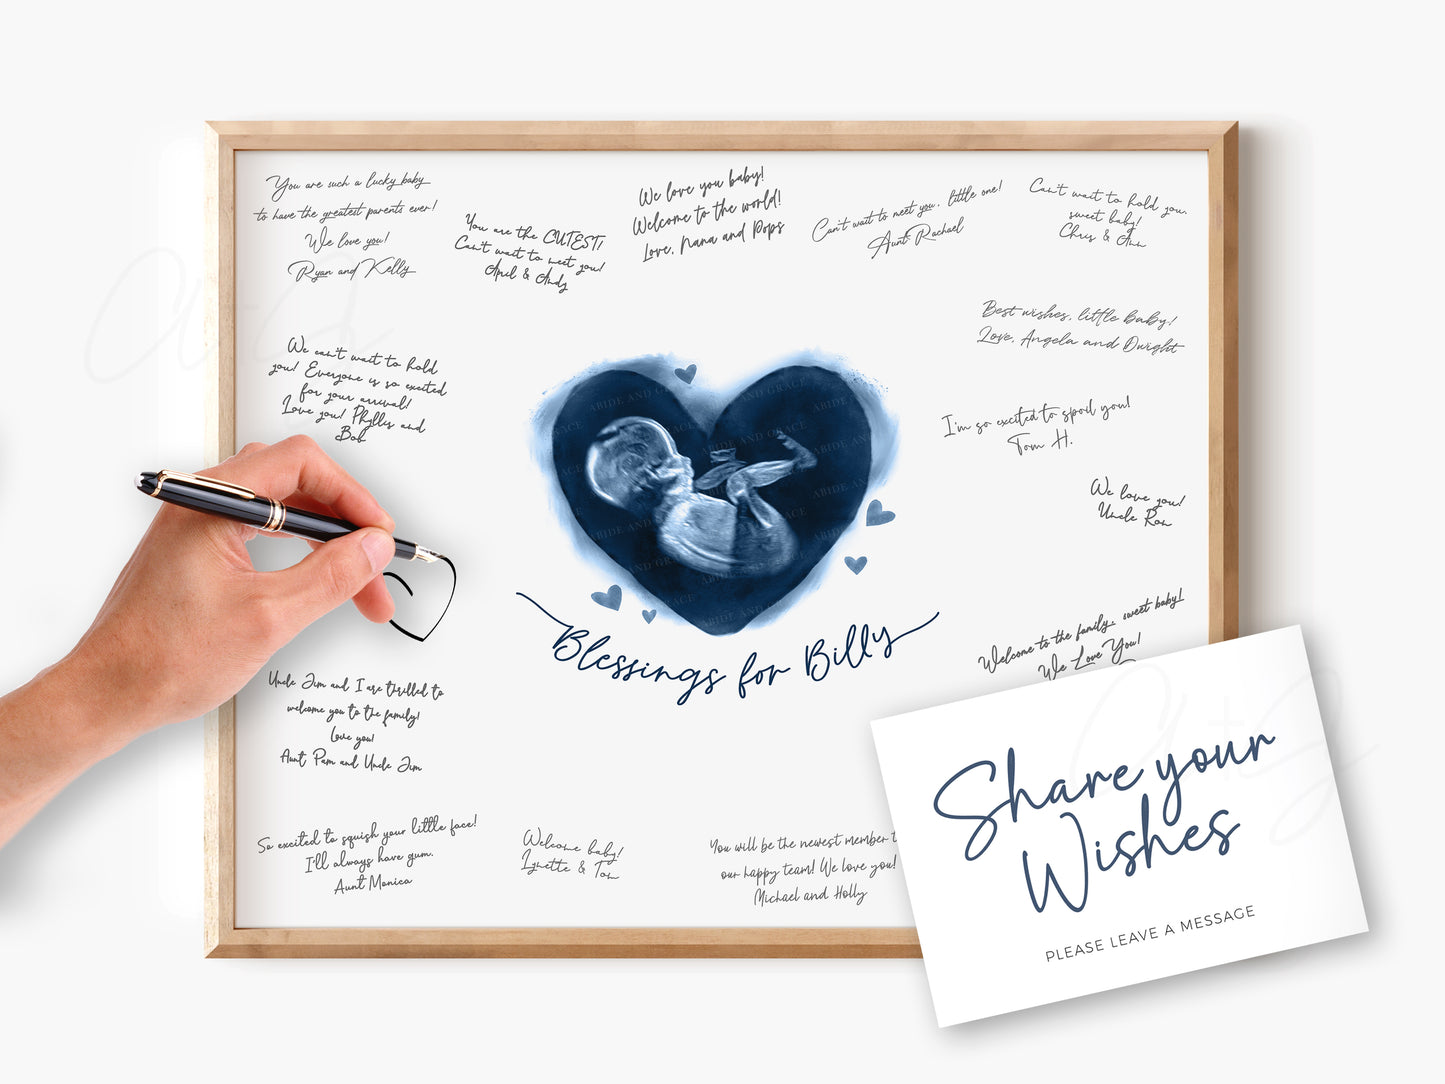 You are such a lucky baby
to have the greatest parents ever!
We love you!
Ryan and Kelly
You are the CUTEST!
Can't wait to meet you!
April & Andy
We love you baby!
Welcome to the world!
Love, Nana and Pops
Can't wait to meet you, little one!
Aunt Rachael
Can't wait to hold you,
sweet baby!
Chris & Ann
Best wishes, little baby!
Love, Angela and Dwight
We can't wait to hold
you! Everyone is so excited
for your arrival!
Love you! Phyllis and
Bob
I'm so excited to spoil you!
Tom H.
We love you!
Uncle Ron
ABIDE AND GRACE
Blessings for Billy
Welcome to the family, sweet baby!
We Love You!
Uncle Jim and I are thrilled to
welcome you to the family!
Love you!
Aunt Pam and Uncle Jim
So excited to squish your little face!
I'll always have gum.
Aunt Monica
Welcome baby!
Lynette & Tom
You will be the newest member t
our happy team! We love you!
Michael and Holly
Share your
Wishes
PLEASE LEAVE A MESSAGE